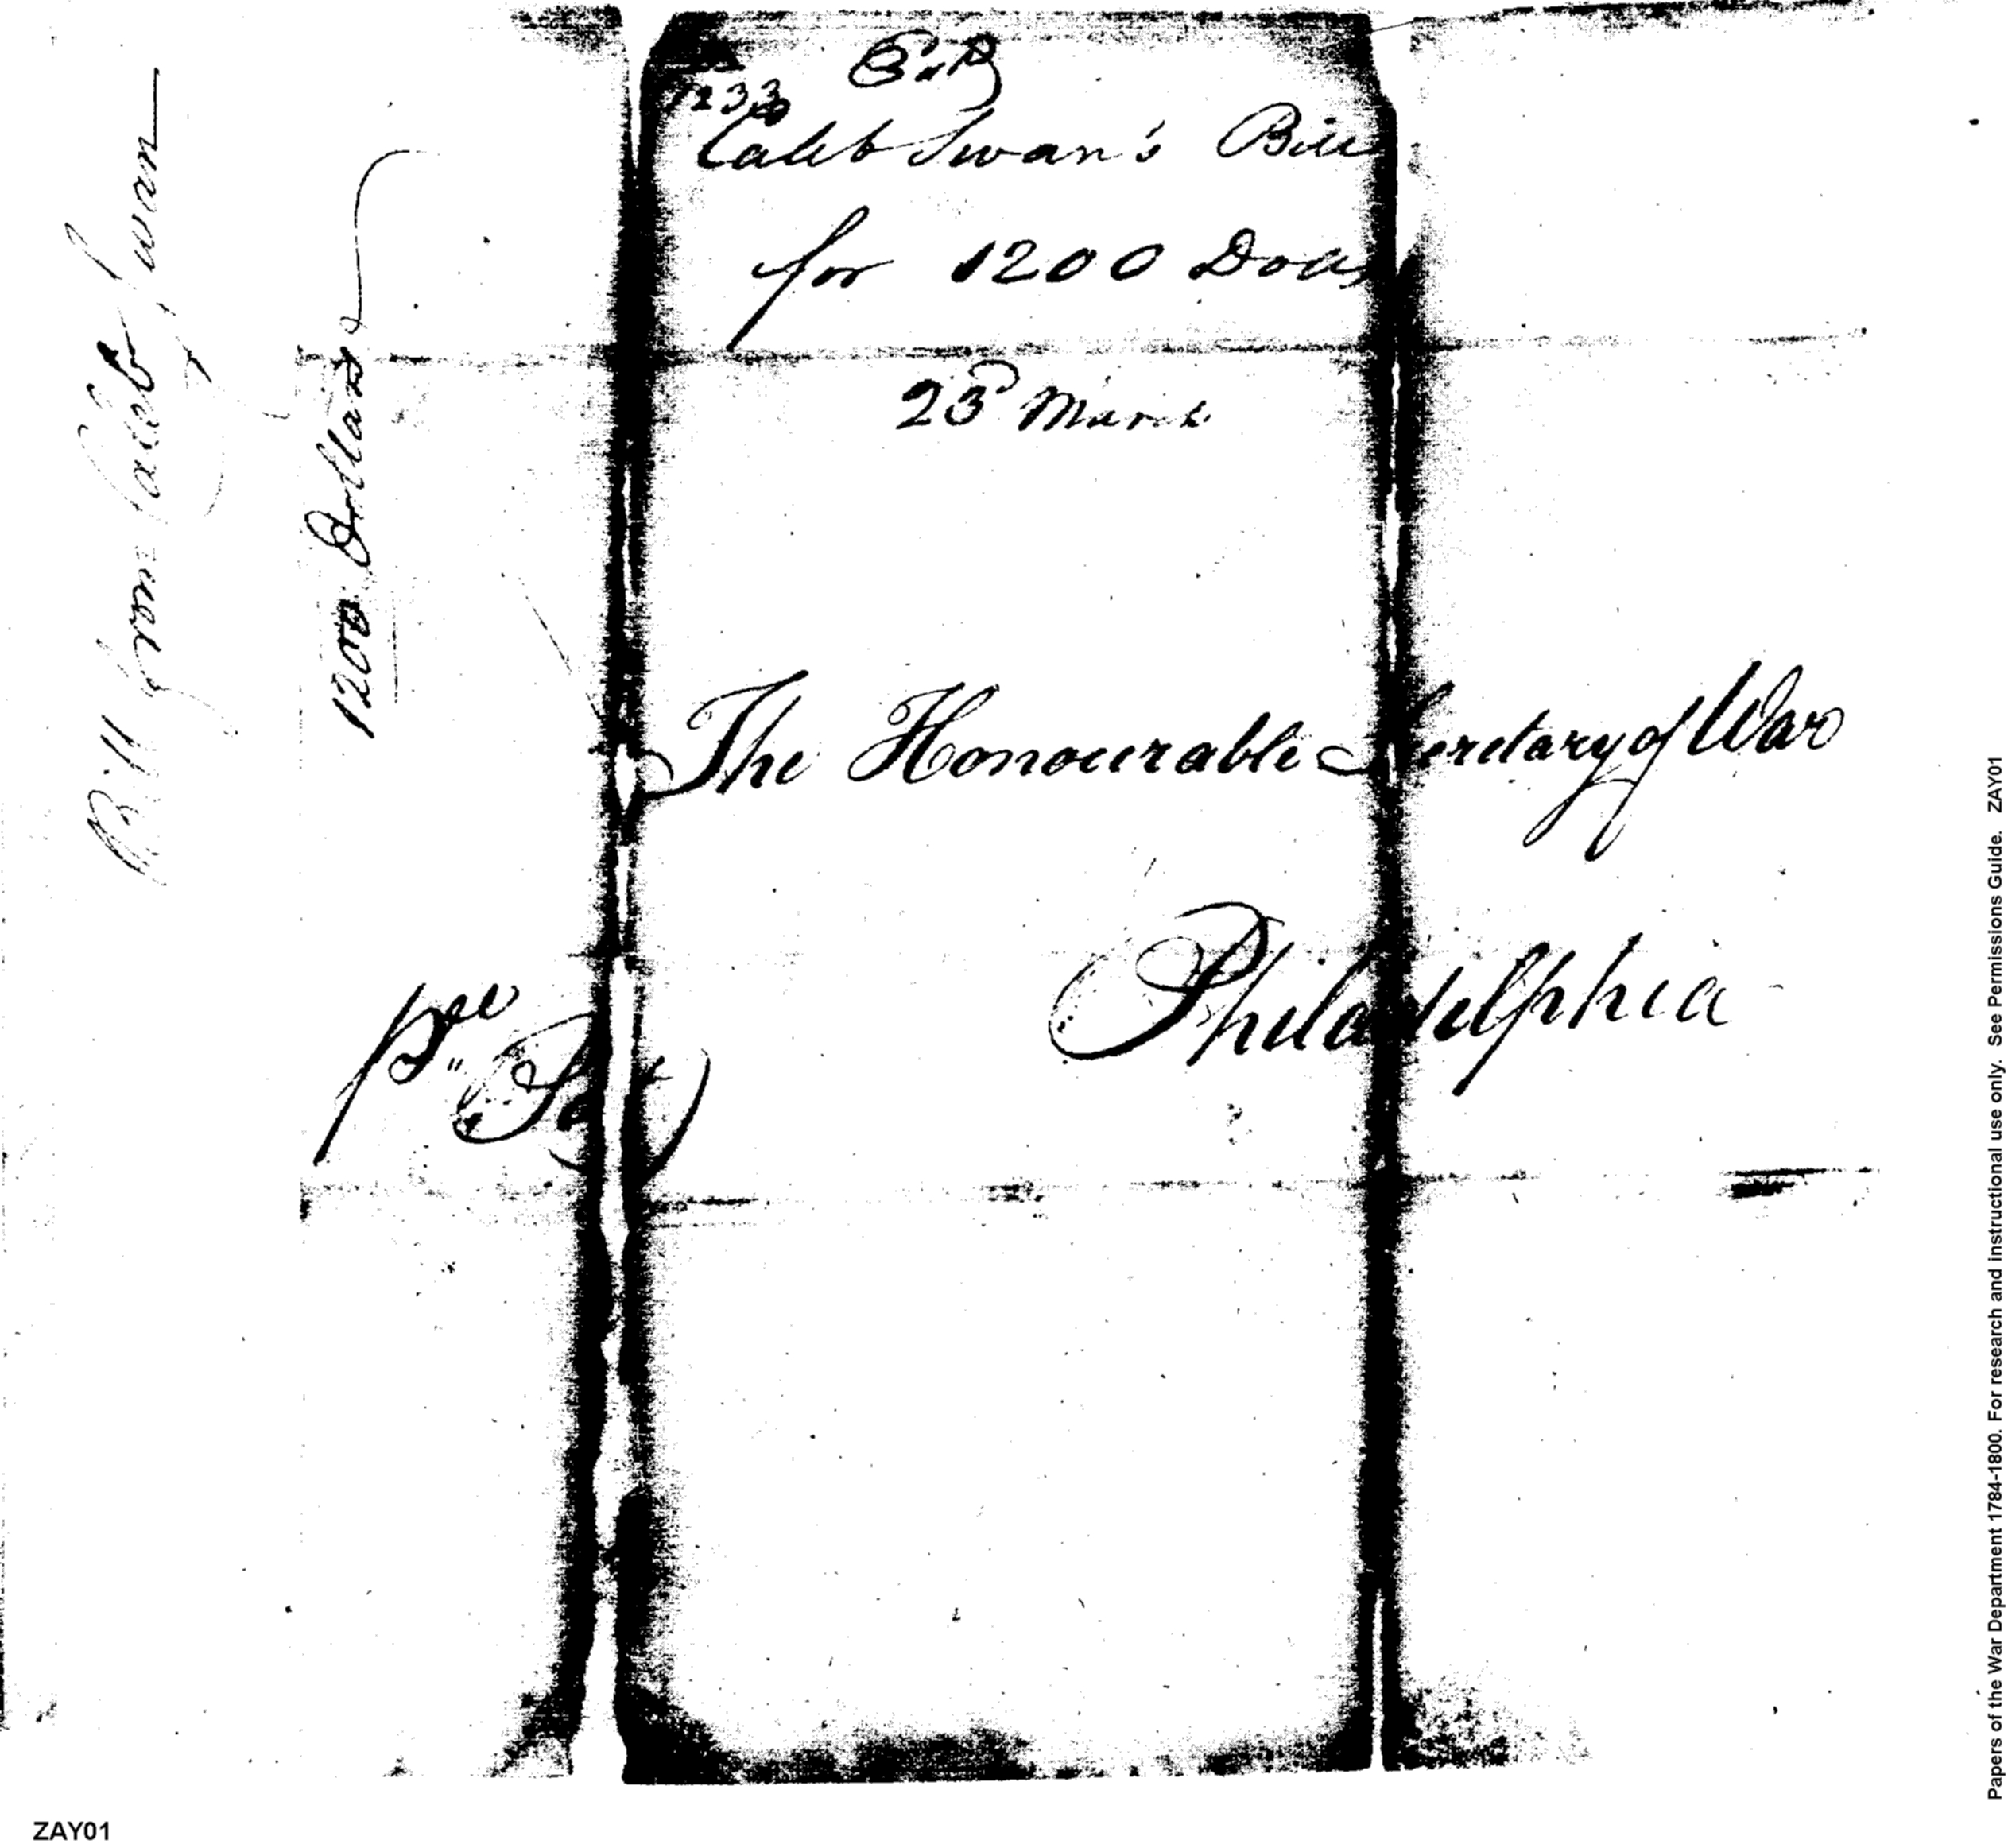 1233
Caleb Swan's Bill
for 1200 Dolls
23d March
The Honourable Secretary of War
Philadelphia
Bill from Caleb Swan
1200 Dollars
Papers of the War Department 1784-1800. For research and instructional use only. See Permissions Guide. ZAY01
ZAY01